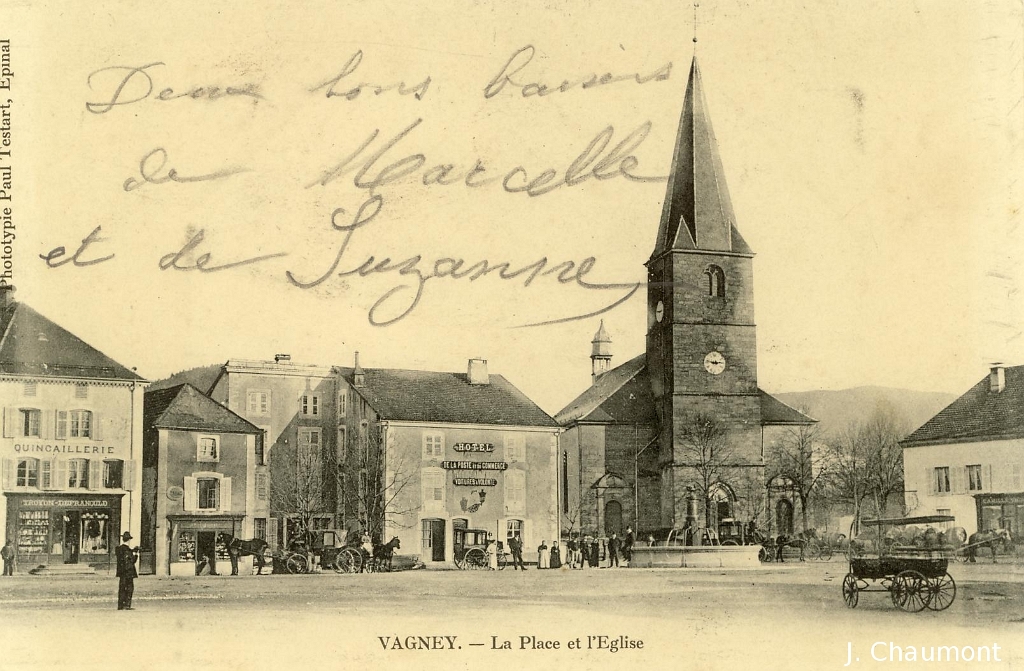 Phototypie Paul Testart, Epinal
Deux bons baisers
de Marcelle
et de Suzanne
QUINCAILLERIE
HOTEL
DE LA POSTE et du COMMERCE
VOITURES à VOLONTÉ
VAGNEY. — La Place et l'Eglise
J. Chaumont